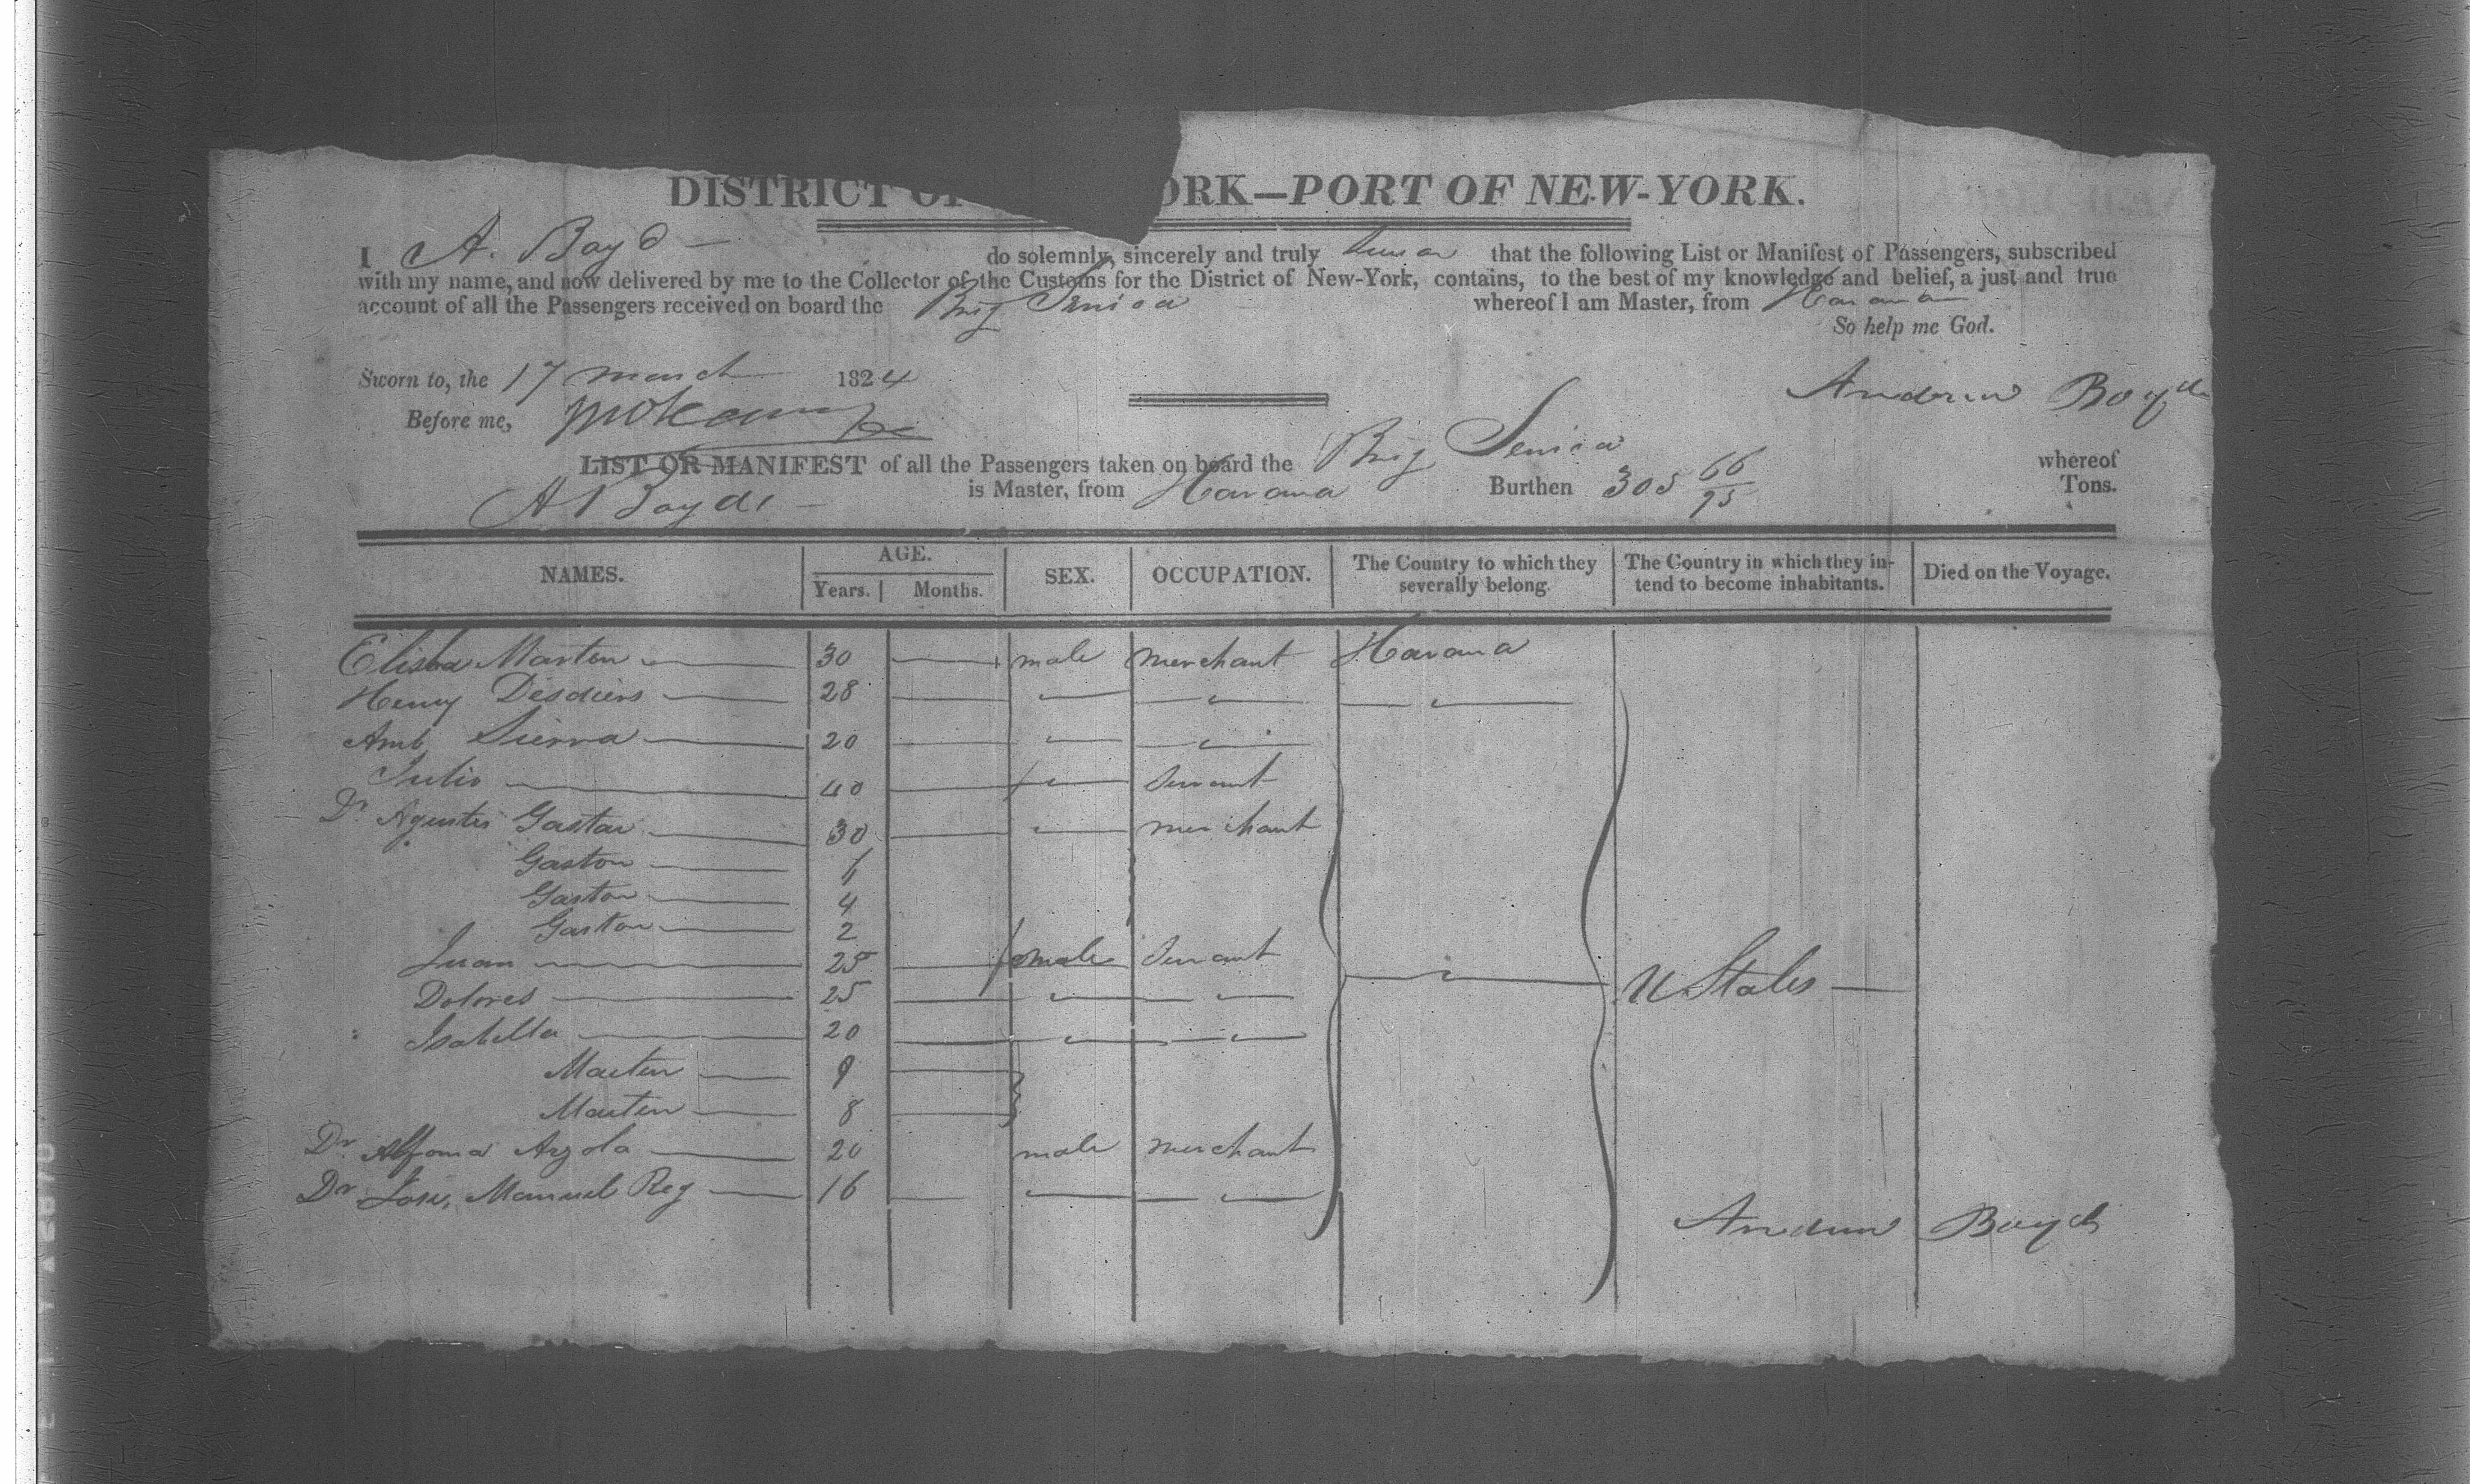 DISTRICT OF ORK—PORT OF NEW-YORK.
I A. Boyd do solemnly, sincerely and truly swear that the following List or Manifest of Passengers, subscribed
with my name, and now delivered by me to the Collector of the Customs for the District of New-York, contains, to the best of my knowledge and belief, a just and true
account of all the Passengers received on board the Brig Seneca whereof I am Master, from Havana
So help me God.
Sworn to, the 17 march 1824
Andrew Boyd
Before me,
LIST OR MANIFEST of all the Passengers taken on board the Brig Seneca whereof
A Boyd is Master, from Havana Burthen 305 66/95 Tons.
NAMES. AGE. Years. Months. SEX. OCCUPATION. The Country to which they severally belong. The Country in which they intend to become inhabitants. Died on the Voyage.
Elisha Marten 30 male merchant Havana
Henry 28
Amb Sierra 20
Julio 40 Servant
Dn Agustin Gaston 30 merchant
Gaston 6
Gaston 4
Gaston 2
Juan 25 female Servant
Dolores 25 U States
Isabella 20
Marten 9
Marten 8
Dn Alfonso Azola 20 male merchant
Dn Jose Manuel Rey 16
Andrew Boyd